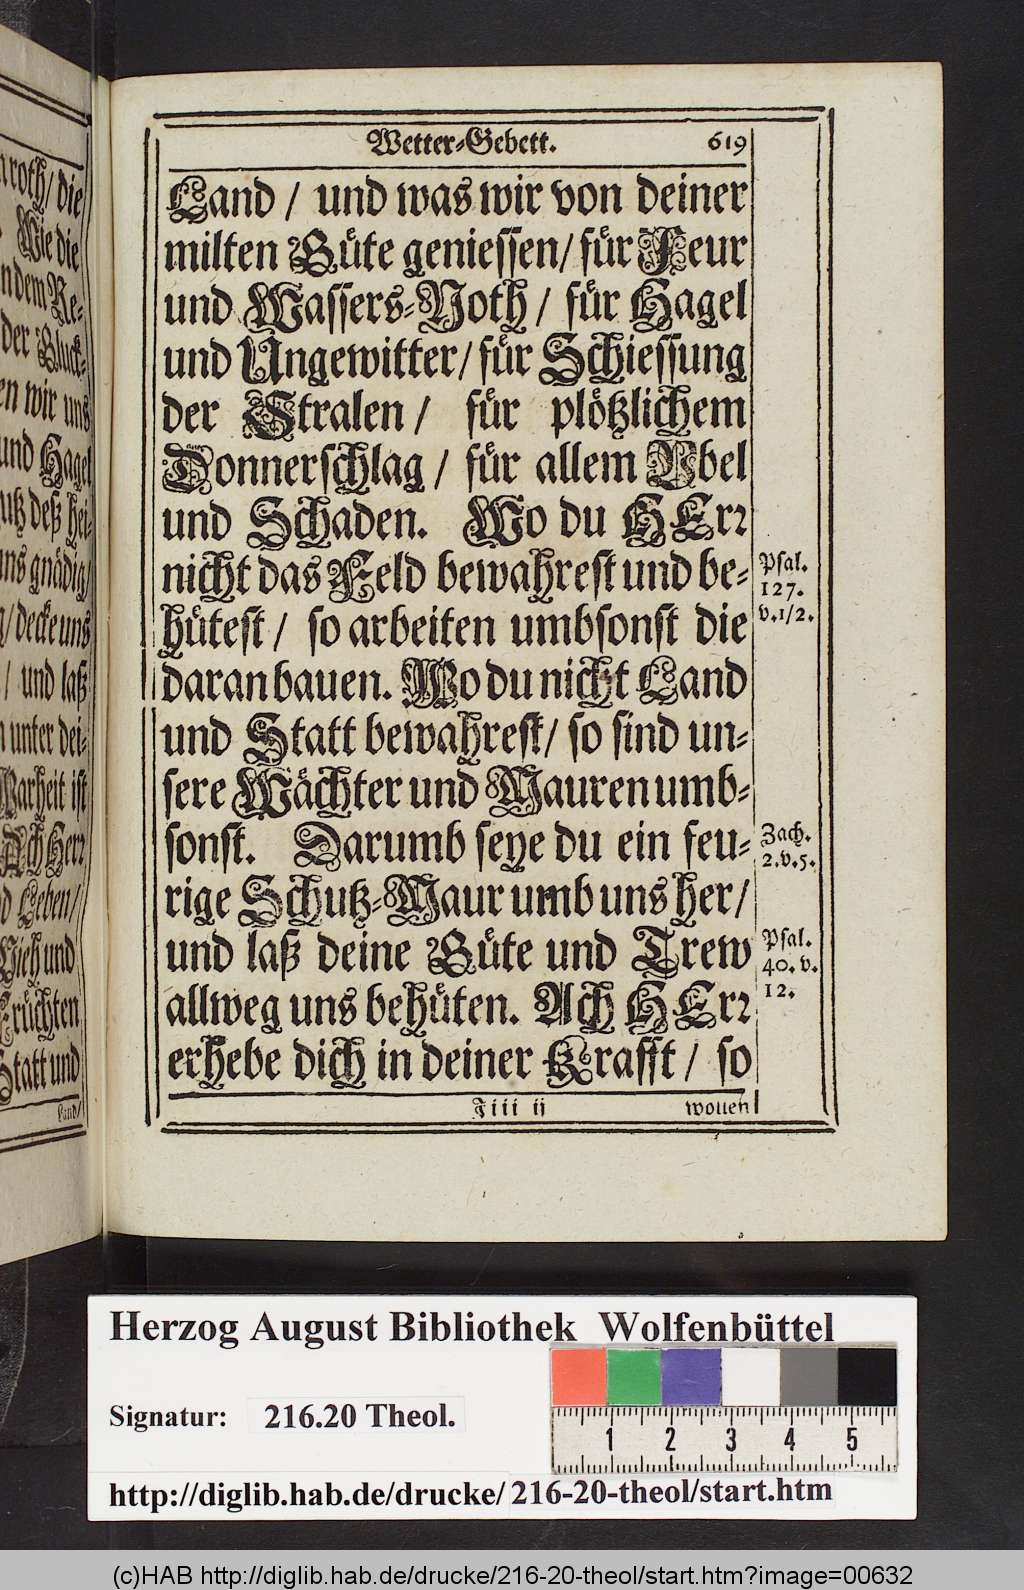 n roth / die
Wie die
n dem Re-
der Gluck-
en wir uns
und Hagel
utz deß hei-
uns gnädig /
/ decke uns
/ und laß
n unter dei-
Warheit ist
Ach Herr
d Leben /
Vieh und
Früchten
Statt und
Land /
Wetter-Gebett. 619
Land / und was wir von deiner
milten Güte geniessen / für Feur
und Wassers-Noth / für Hagel
und Ungewitter / für Schiessung
der Stralen / für plötzlichem
Donnerschlag / für allem Vbel
und Schaden. Wo du HErr
nicht das Feld bewahrest und be-
hütest / so arbeiten umbsonst die
daran bauen. Wo du nicht Land
und Statt bewahrest / so sind un-
sere Wächter und Mauren umb-
sonst. Darumb seye du ein feu-
rige Schutz-Maur umb uns her /
und laß deine Güte und Trew
allweg uns behüten. Ach HErr
erhebe dich in deiner Krafft / so
Jiii ij wollen
Psal.
127.
v.1/2.
Zach.
2.v.5.
Psal.
40. v.
12.
Herzog August Bibliothek Wolfenbüttel
Signatur: 216.20 Theol.
1 2 3 4 5
http://diglib.hab.de/drucke/216-20-theol/start.htm
(c)HAB http://diglib.hab.de/drucke/216-20-theol/start.htm?image=00632